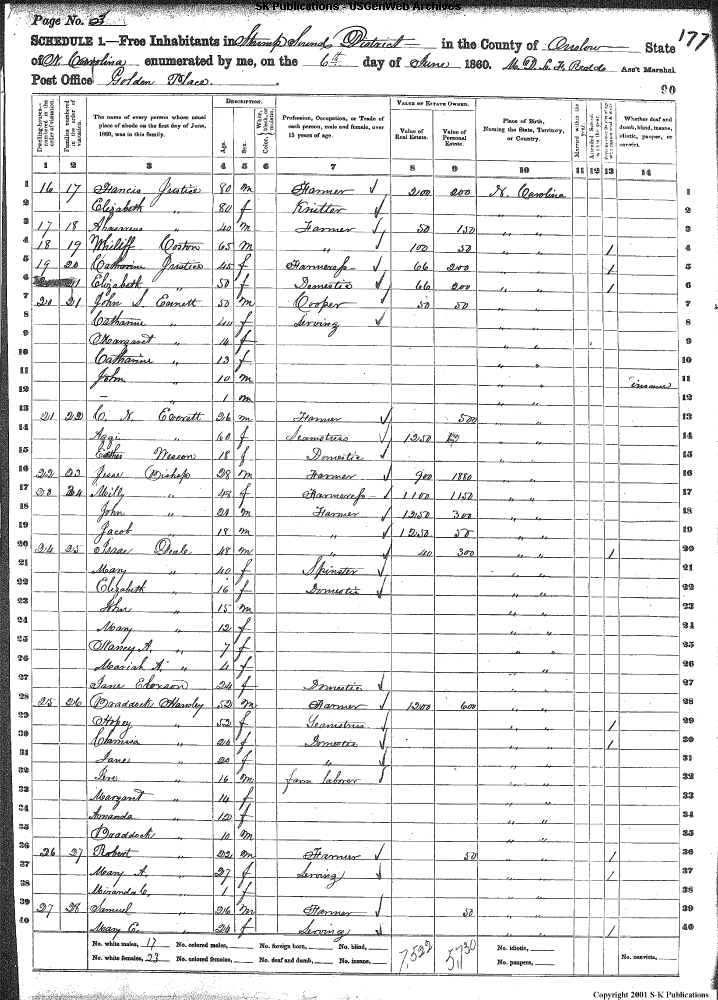 SK Publications - USGenWeb Archives
Page No. 3
177
SCHEDULE 1.—Free Inhabitants in Stump Sound District in the County of Onslow State
of N. Carolina enumerated by me, on the 6th day of June 1860. Ass't Marshal
Post Office Golden Place
90
Dwelling-houses—numbered in the order of visitation.
Families numbered in the order of visitation.
The name of every person whose usual place of abode on the first day of June, 1860, was in this family.
DESCRIPTION.
Age.
Sex.
Color, White, black, or mulatto.
Profession, Occupation, or Trade of each person, male and female, over 15 years of age.
VALUE OF ESTATE OWNED.
Value of Real Estate.
Value of Personal Estate.
Place of Birth, Naming the State, Territory, or Country.
Married within the year.
Attended School within the year.
Whether deaf and dumb, blind, insane, idiotic, pauper, or convict.
1 2 3 4 5 6 7 8 9 10 11 12 13 14
1 16 17 Francis Justice 80 m Farmer ✓ 2100 200 N. Carolina 1
2 Elizabeth " 80 f Knitter ✓ " " 2
3 17 18 " 40 m Farmer ✓ 50 150 " " 3
4 18 19 Coston 65 m " ✓ 100 50 " " / 4
5 19 20 Catharine Justice 45 f ✓ 66 200 " " / 5
6 Elizabeth " 50 f Domestic ✓ 66 200 " " / 6
7 20 21 John S. Everett 50 m Cooper ✓ 50 50 " " 7
8 Catharine " 40 f Serving ✓ " " 8
9 Margaret " 14 f " " 9
10 Catharine " 13 f " " 10
11 John " 10 m " " insane 11
12 — " 1 m " " 12
13 21 22 C. N. Everett 26 m Farmer ✓ 500 " " 13
14 Aggi " 60 f Seamstress ✓ 1250 " " 14
15 Esther Wesson 18 f Domestic ✓ " " 15
16 22 23 Jesse Bishop 28 m Farmer ✓ 900 1880 " " 16
17 23 24 Milly " 48 f ✓ 1100 1150 " " 17
18 John " 21 m Farmer ✓ 1250 300 " " 18
19 Jacob " 18 m " ✓ 1250 50 " " 19
20 24 25 Isaac 48 m " ✓ 40 300 " " / 20
21 Mary " 40 f Spinster ✓ " " 21
22 Elizabeth " 16 f Domestic ✓ " " 22
23 John " 15 m " " 23
24 Mary " 12 f " " 24
25 Nancy A. " 7 f " " 25
26 Mariah A. " 4 f " " 26
27 Jane 24 f Domestic ✓ " " 27
28 25 26 Braddock Hansley 52 m Farmer ✓ 1200 600 " " 28
29 Hopey " 52 f Seamstress ✓ " " / 29
30 " f Domestic ✓ " " / 30
31 Jane " 20 f " ✓ " " 31
32 " 16 m farm laborer ✓ " " 32
33 Margaret " 14 f " " 33
34 Amanda " 12 f " " 34
35 Braddock " 10 m " " 35
36 26 27 Robert " 22 m Farmer ✓ 50 " " / 36
37 Mary A. " 27 f Serving ✓ " " / 37
38 Miranda C. " 1 f " " 38
39 27 28 Samuel " 26 m Farmer ✓ 50 " " 39
40 Mary C. " 24 f Serving ✓ " " / 40
No. white males, 17 No. colored males, No. foreign born, No. blind, 7,522 5,730 No. idiotic,
No. white females, 23 No. colored females, No. deaf and dumb, No. insane, No. paupers, No. convicts,
Copyright 2001 S-K Publications